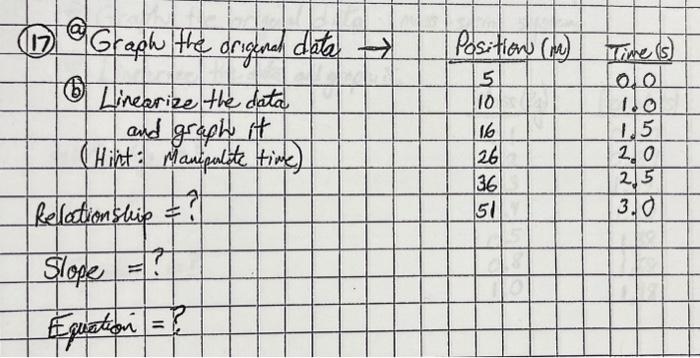 (17) (a) Graph the original data → Position (m) Time (s)
5 0.0
(b) Linearize the data 10 1.0
and graph it 16 1.5
(Hint: Manipulate time) 26 2.0
36 2.5
Relationship = ? 51 3.0
Slope = ?
Equation = ?